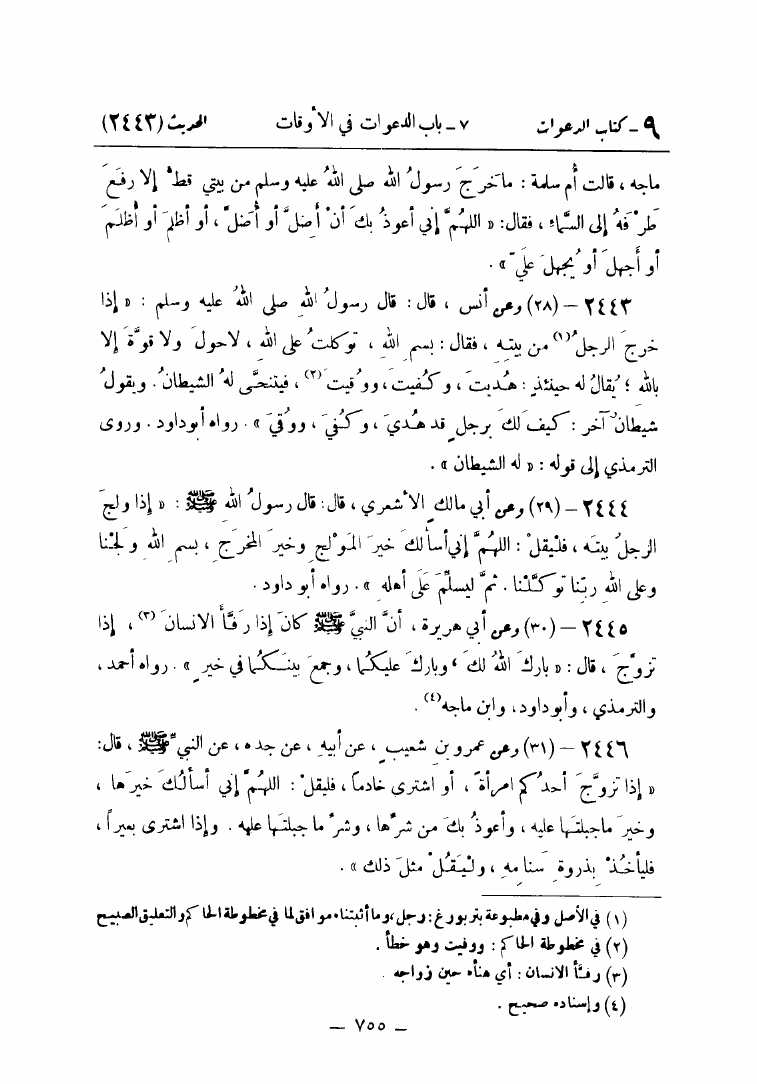 ٩ ـ كتاب الدعوات ٧ ـ باب الدعوات في الأوقات الحديث (٢٤٤٣)
ماجه ، قالت أُم سلمة : ماخرَجَ رسولُ الله صلى اللهُ عليه وسلم من بيتي قطْ إِلا رفعَ
طرْفهُ إِلى السَّماءِ ، فقال: « اللهُمَّ إِني أعوذُ بكَ أنْ أَضِلَّ أو أُضلَّ ، أو أظلِمَ أو أُظلَمَ
أو أَجهلَ أو يُجهلَ عليَّ » .
٢٤٤٣ – (٢٨) وعن أنس ، قال : قال رسولُ اللهِ صلى اللهُ عليه وسلم : « إِذا
خرجَ الرجلُ(١) من بيتِهِ ، فقال : بسمِ اللهِ ، توكلتُ على اللهِ ، لاحولَ ولا قوَّةَ إِلا
بالله ؛ يُقالُ له حينئذٍ : هُديتَ ، وكُفيتَ، ووُقيتَ(٢) ، فيتنحَّى لهُ الشيطانُ. ويقولُ
شيطانٌ آخر : كيفَ لكَ برجلٍ قد هُديَ ، وكُفيَ ، ووُقيَ » . رواه أبوداود . وروى
الترمذي إِلى قوله : « له الشيطان » .
٢٤٤٤ – (٢٩) وعن أبي مالكٍ الأشعري ، قال: قال رسولُ الله ﷺ : « إِذا ولجَ
الرجلُ بيتَه ، فليقلْ : اللهُمَّ إِني أسألكَ خيرَ المَوْلجِ وخيرَ المخرَجِ ، بسمِ اللهِ ولَجْنا
وعلى اللهِ ربِّنا توكَّلْنا . ثمَّ ليسلِّمْ عَلَى أهلهِ » . رواه أبو داود .
٢٤٤٥ – (٣٠) وعن أبي هريرة ، أنَّ النبيَّ ﷺ كانَ إِذا رَفَّأَ الانسانَ (٣) ، إِذا
تزوَّجَ ، قال : « باركَ اللهُ لكَ ، وباركَ عليكُما ، وجمعَ بينَكُما في خيرٍ » . رواه أحمد ،
والترمذي ، وأبوداود، وابن ماجه(٤) .
٢٤٤٦ – (٣١) وعن عمرو بنِ شعيبٍ ، عن أبيهِ ، عن جده ، عن النبيِّ ﷺ ، قال:
« إِذا تزوَّجَ أحدُكم امرأةً ، أو اشترى خادماً ، فليقلْ : اللهُمَّ إِني أسألُكَ خيرَها ،
وخيرَ ماجبلتَها عليه ، وأعوذُ بكَ من شرِّها ، وشرِّ ما جبلتَها عليه . وإِذا اشترى بعيراً ،
فليأخُذْ بِذروةِ سَنامِهِ ، ولْيَقُلْ مثلَ ذلك » .
(١) في الأصل وفي مطبوعة بتربورغ : رجل ،وما أثبتناه موافق لما في مخطوطة الحاكم والتعليق الصبيح
(٢) في مخطوطة الحاكم : ووفيت وهو خطأ .
(٣) رفّأ الانسان : أي هنأه حين زواجه .
(٤) وإسناده صحيح .
ـ ٧٥٥ ـ